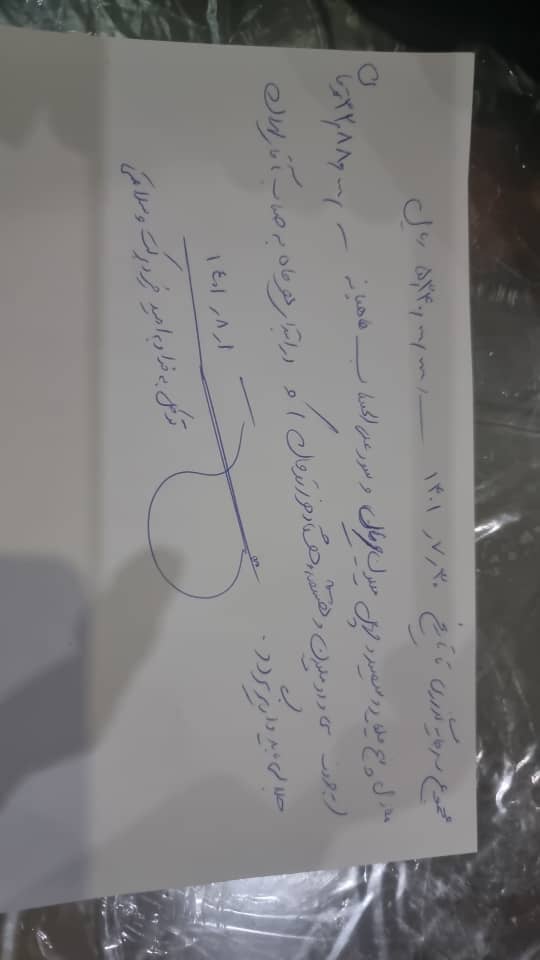 مجموع سرمایه گذاری تا تاریخ ۱۴۰۱٫۷٫۳۰ ۵٫۳۴۰٫۰۰۰٫۰۰۰ ریال
معادل پنج میلیارد و سیصد و چهل میلیون ریال و سود علی الحساب ماهیانه ۳۲٫۸۸۰٫۰۰۰ تومان
(به حروف سی و دو میلیون و هشتصد و هشتاد هزار تومان) که در ابتدای هر ماه به حساب آقای
جلالی باید واریز گردد.
۱۴۰۱٫۸٫۱
توکل به خدا به امید خیر و برکت و سلامتی